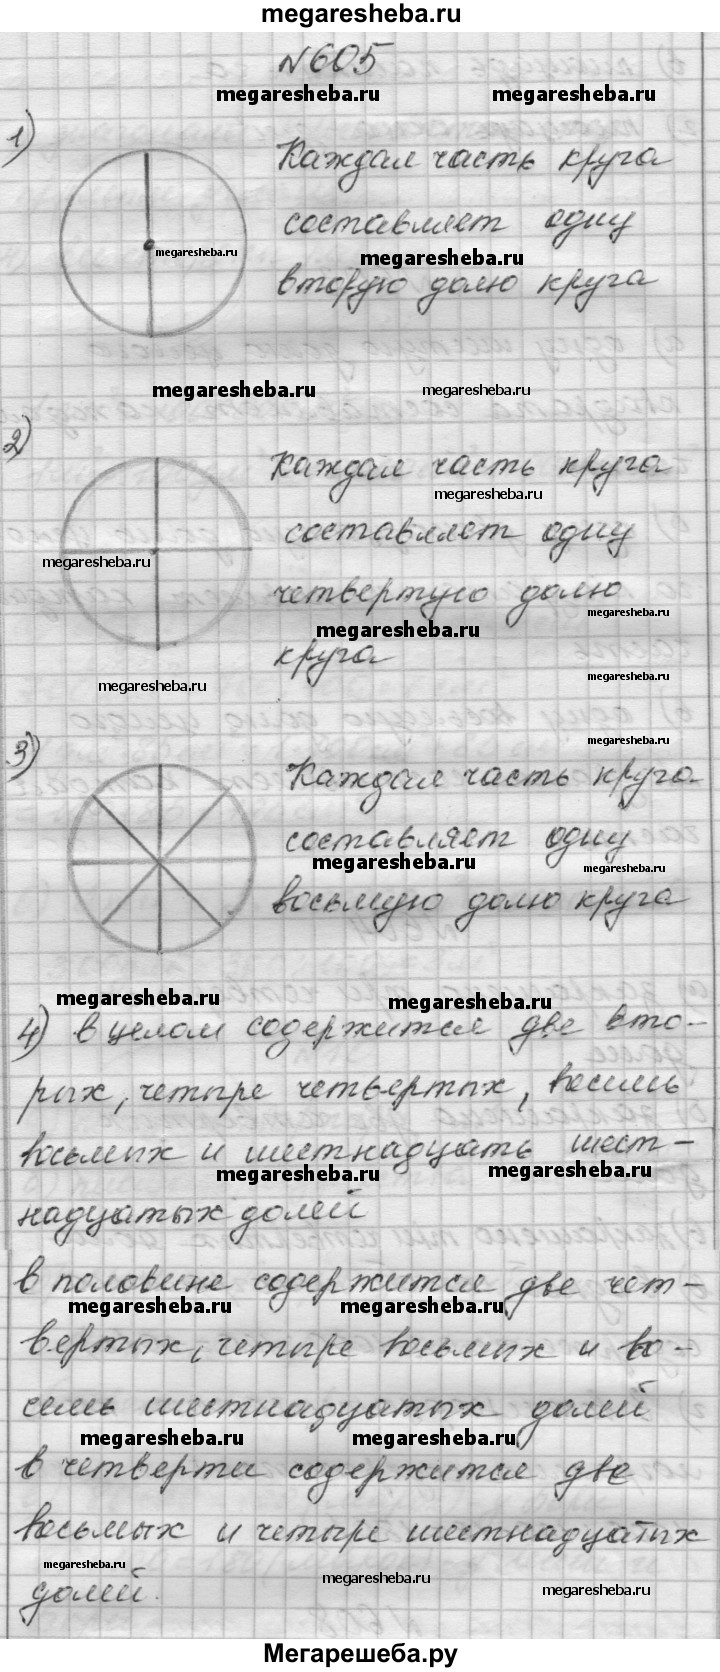 megaresheba.ru
№605
megaresheba.ru megaresheba.ru
1)
Каждая часть круга
составляет одну
megaresheba.ru megaresheba.ru
вторую долю круга
megaresheba.ru megaresheba.ru
2)
Каждая часть круга
megaresheba.ru
составляет одну
megaresheba.ru
четвертую долю
megaresheba.ru
megaresheba.ru
круга
megaresheba.ru megaresheba.ru
megaresheba.ru
3)
Каждая часть круга
составляет одну
megaresheba.ru megaresheba.ru
восьмую долю круга
megaresheba.ru megaresheba.ru
4) в целом содержится две вто-
рых, четыре четвертых, восемь
восьмых и шестнадцать шест-
megaresheba.ru megaresheba.ru
надцатых долей
в половине содержится две чет-
megaresheba.ru megaresheba.ru
вертых, четыре восьмых и во-
семь шестнадцатых долей
megaresheba.ru megaresheba.ru
в четверти содержится две
восьмых и четыре шестнадцатых
megaresheba.ru megaresheba.ru megaresheba.ru
долей.
Мегарешеба.ру